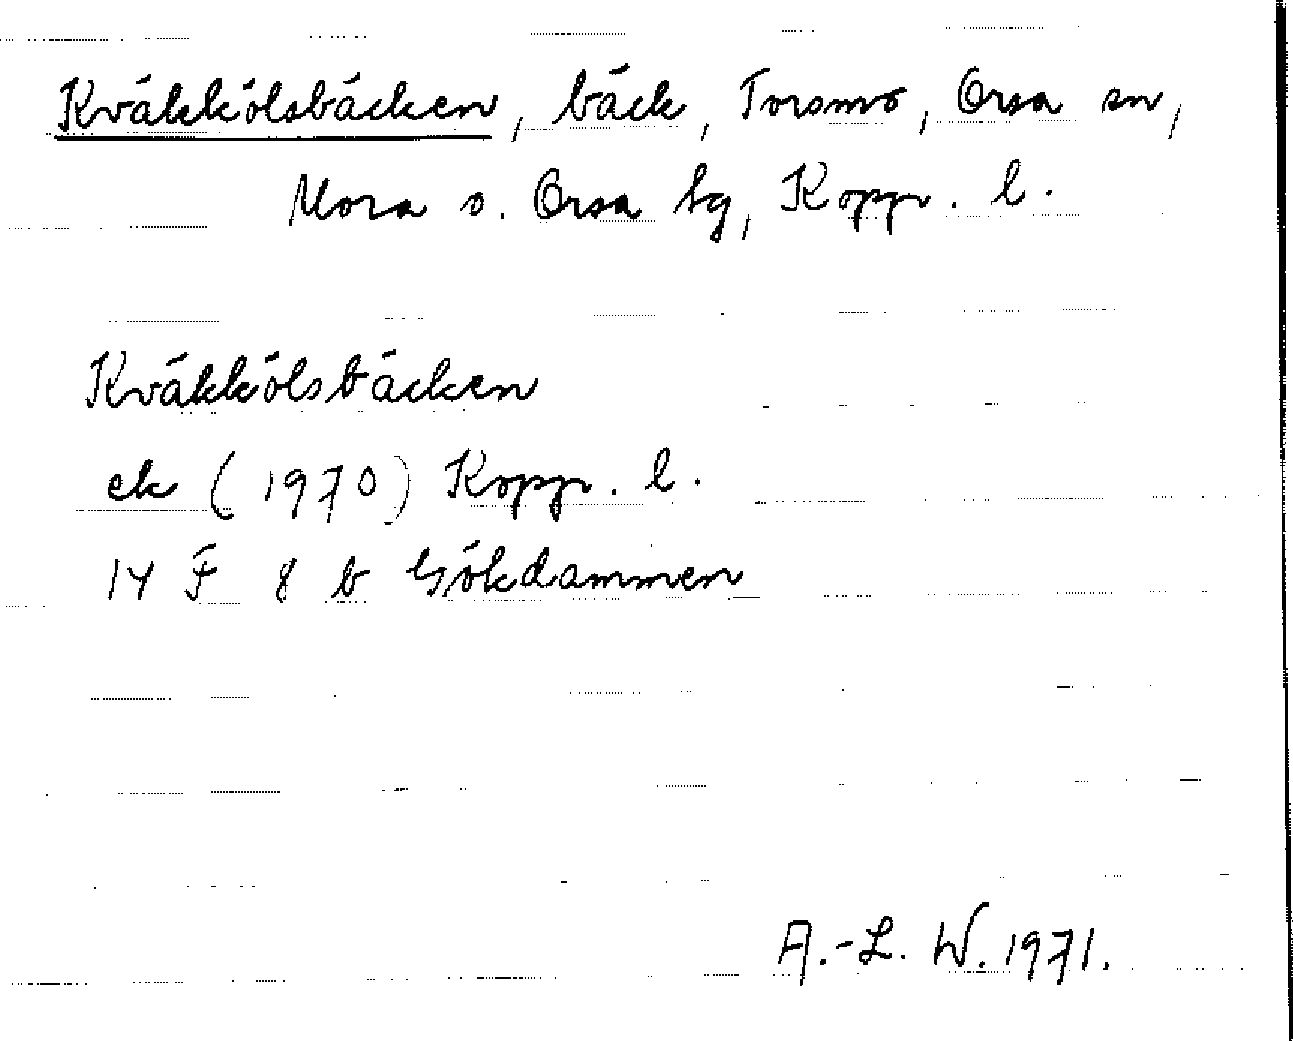 Kväkkölsbäcken, bäck, Torsmo, Orsa sn,
Mora o. Orsa tg, Kopp. l.
Kväkkölsbäcken
ek (1970) Kopp. l.
14 F 8 b Gökdammen
A.-L. W. 1971.